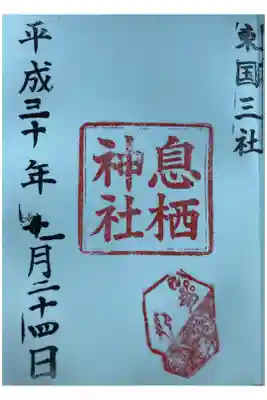 東国三社
息栖
神社
平成三十年 月二十四日